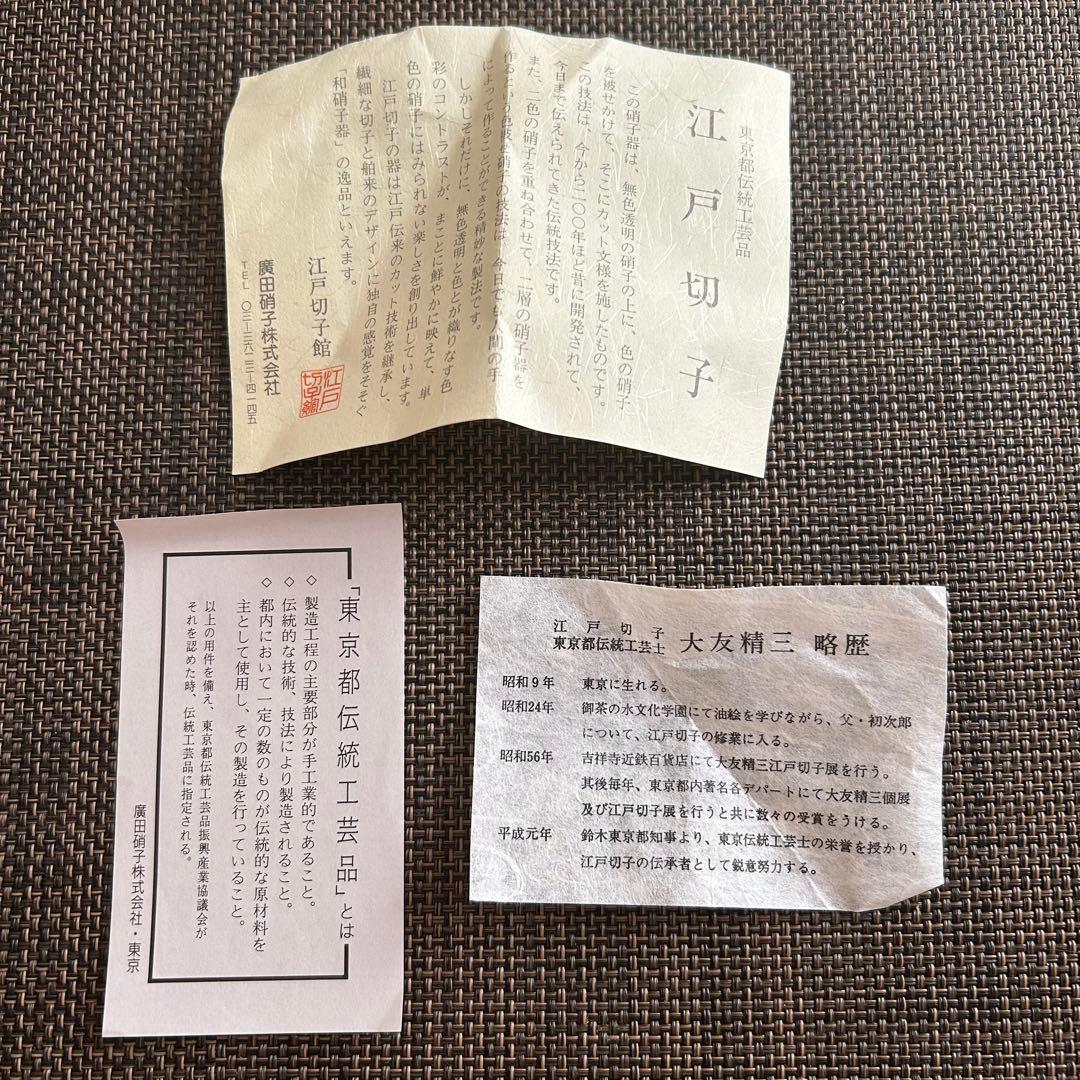 東京都伝統工芸品
江戸切子
この硝子器は、無色透明の硝子の上に、色の硝子
を被せかけて、そこにカット文様を施したものです。
この技法は、今から二〇〇年ほど昔に開発されて、
今日まで伝えられてきた伝統技法です。
また、二色の硝子を重ね合わせて、二層の硝子器を
作るという色被せ硝子の技法は、今日でも人間の手
によって作ることができる精妙な製法です。
しかしそれだけに、無色透明と色とが織りなす色
彩のコントラストが、まことに鮮やかに映えて、単
色の硝子にはみられない楽しさを創り出しています。
江戸切子の器は江戸伝来のカット技術を継承し、
繊細な切子と舶来のデザインに独自の感覚をそそぐ
「和硝子器」の逸品といえます。
江戸切子館
江戸切子館
廣田硝子株式会社
TEL 〇三―三六二三―四一四五
「東京都伝統工芸品」とは
◇ 製造工程の主要部分が手工業的であること。
◇ 伝統的な技術、技法により製造されること。
◇ 都内において一定の数のものが伝統的な原材料を
主として使用し、その製造を行っていること。
以上の用件を備え、東京都伝統工芸品振興産業協議会が
それを認めた時、伝統工芸品に指定される。
廣田硝子株式会社・東京
江戸切子
東京都伝統工芸士 大友精三 略歴
昭和9年 東京に生れる。
昭和24年 御茶の水文化学園にて油絵を学びながら、父・初次郎
について、江戸切子の修業に入る。
昭和56年 吉祥寺近鉄百貨店にて大友精三江戸切子展を行う。
其後毎年、東京都内著名各デパートにて大友精三個展
及び江戸切子展を行うと共に数々の受賞をうける。
平成元年 鈴木東京都知事より、東京伝統工芸士の栄誉を授かり、
江戸切子の伝承者として鋭意努力する。